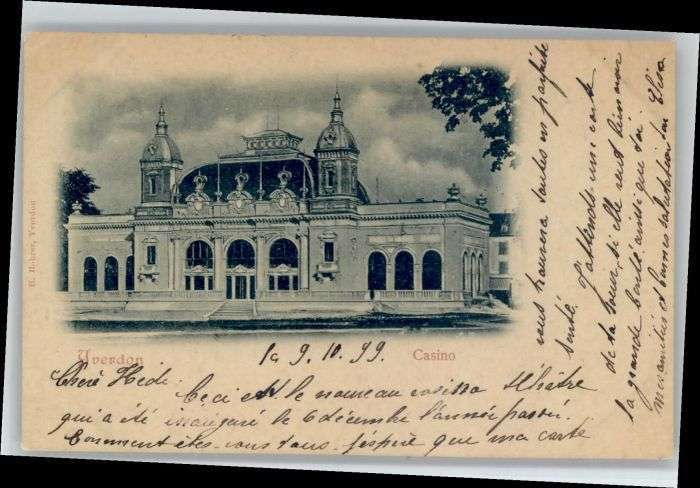 H. Rohrer, Yverdon
Yverdon
Casino
la 9. 10. 99.
Chère Hedi.
Ceci est le nouveau casino théâtre
qui a été inauguré le 6 décembre l'année passée.
Comment êtes-vous tous. j'espère que ma carte
vous trouvera toutes en parfaite
santé. J'attends une carte
de ta soeur, si elle veut bien
la grande bonté ainsi que toi
mes amitiés et bonnes salutations Elisa